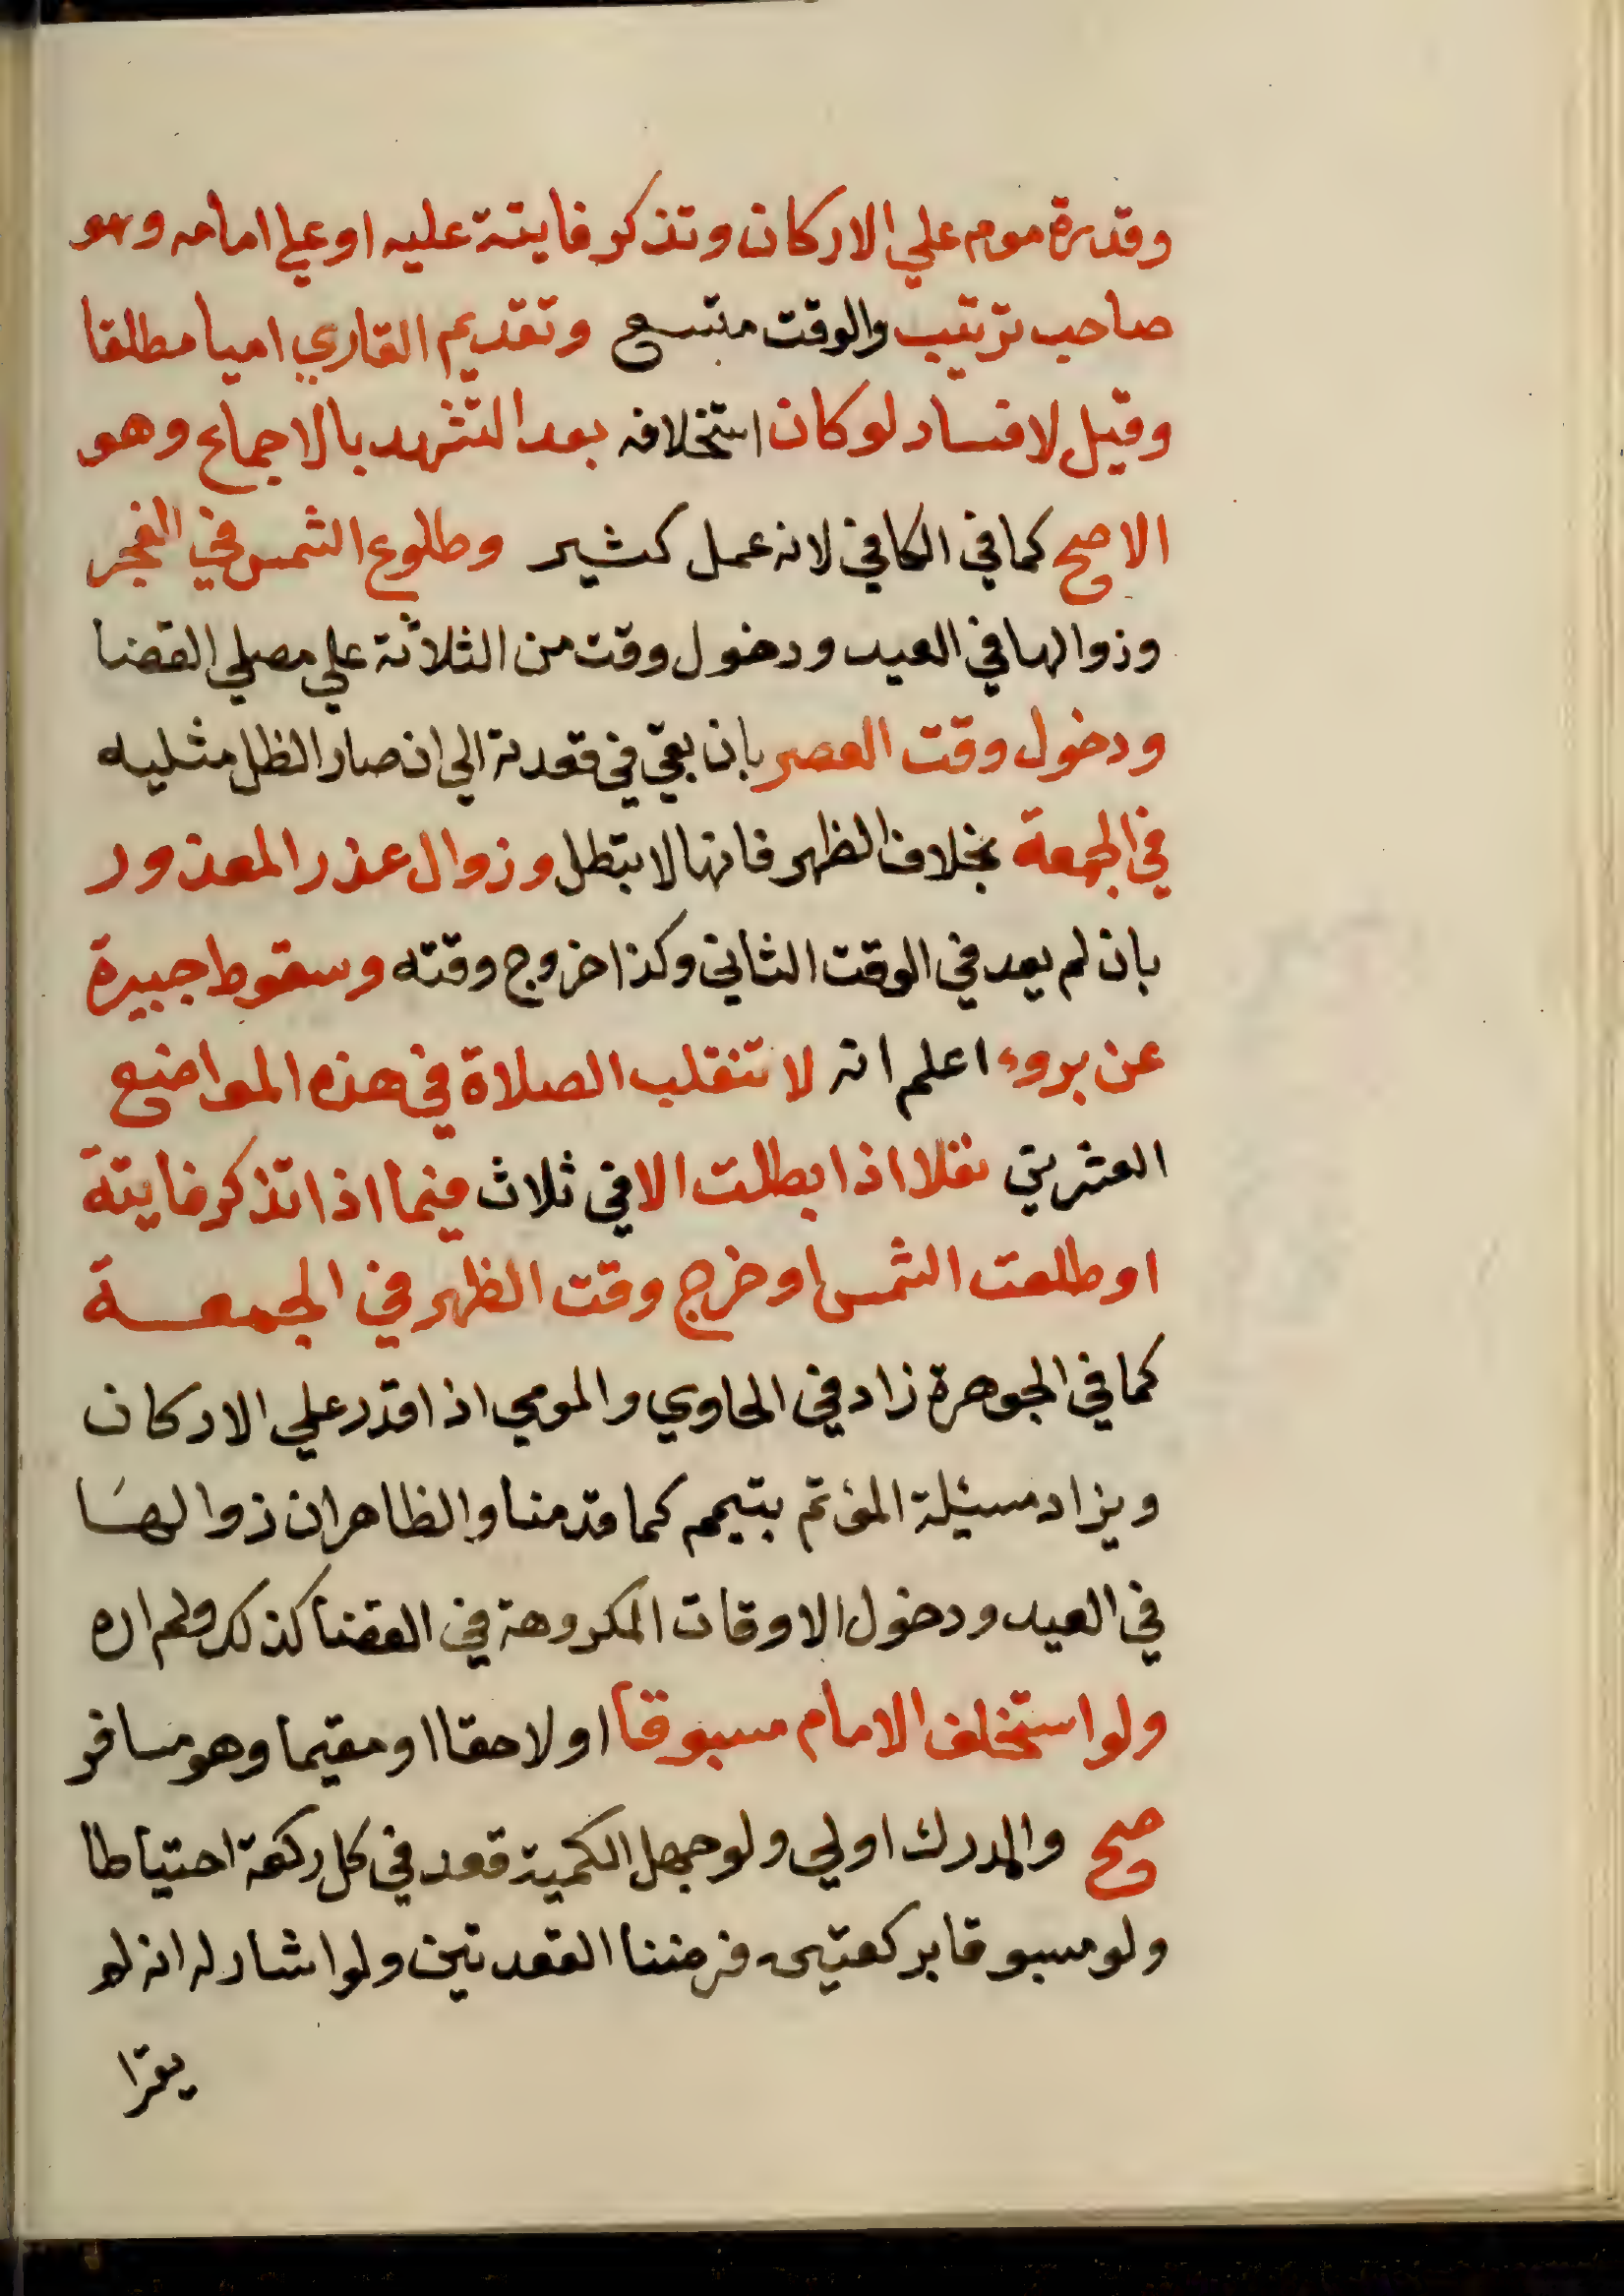 وقدرة موم علي الاركان وتذكر فايتة عليه او علي امامه وهو
صاحب ترتيب والوقت متسع وتقديم القاري اميا مطلقا
وقيل لا فساد لو كان استخلافه بعد التشهد بالاجماع وهو
الاصح كما في الكافي لانه عمل كثير وطلوع الشمس في الفجر
وزوالها في العيد ودخول وقت من الثلاثة علي مصلي القضا
ودخول وقت العصر بان بقي في قعدته الي ان صار الظل مثليه
في الجمعة بخلاف الظهر فانها لا تبطل وزوال عذر المعذور
بان لم يعد في الوقت الثاني وكذا خروج وقته وسقوط جبيرة
عن بروء اعلم انه لا تنقلب الصلاة في هذه المواضع
العشرين نفلا اذا بطلت الا في ثلاث فيما اذا تذكر فايتة
او طلعت الشمس او خرج وقت الظهر في الجمعة
كما في الجوهرة زاد في الحاوي والمومي اذا قدر علي الاركان
ويزاد مسئلة المؤتم بتيمم كما قدمنا والظاهر ان زوالها
في العيد ودخول الاوقات المكروهة في القضا كذلك ولم اره
ولو استخلف الامام مسبوقا او لاحقا او مقيما وهو مسافر
صح والمدرك اولي ولو جهل الكمية قعد في كل ركعة احتياطا
ولو مسبوقا بركعتين فرضنا القعدتين ولو اشار له انه لم
يقرا